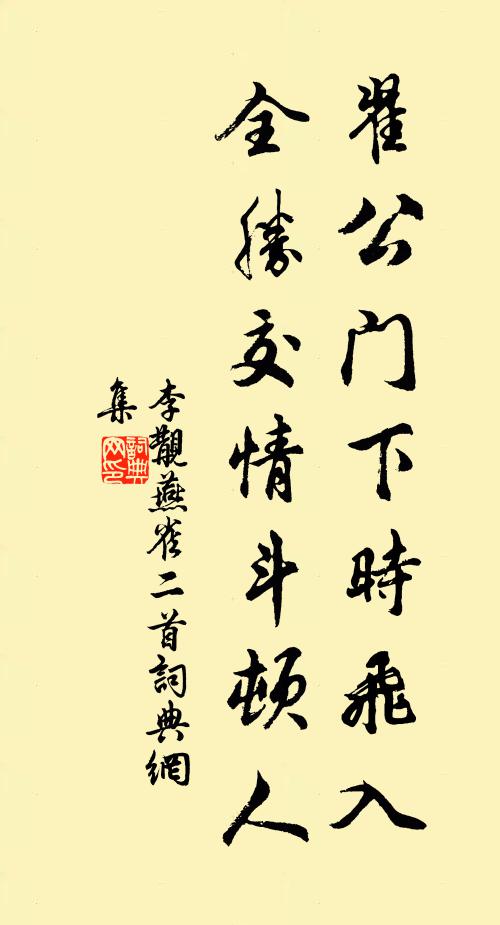 翟公門下時飛入
全勝交情斗頓人
李覯燕雀二首詞典網
集
詞典
网印